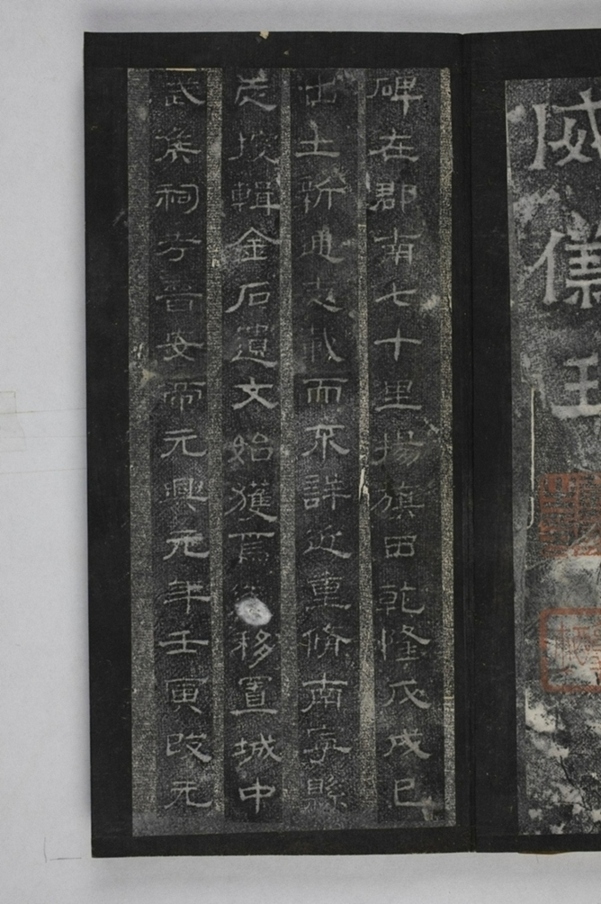 威儀王
碑在郡南七十里揚旗田乾隆戊戌已
出土新通志載而不詳近重修南寧縣
志搜輯金石遺文始獲焉移置城中
武侯祠考晉安帝元興元年壬寅改元